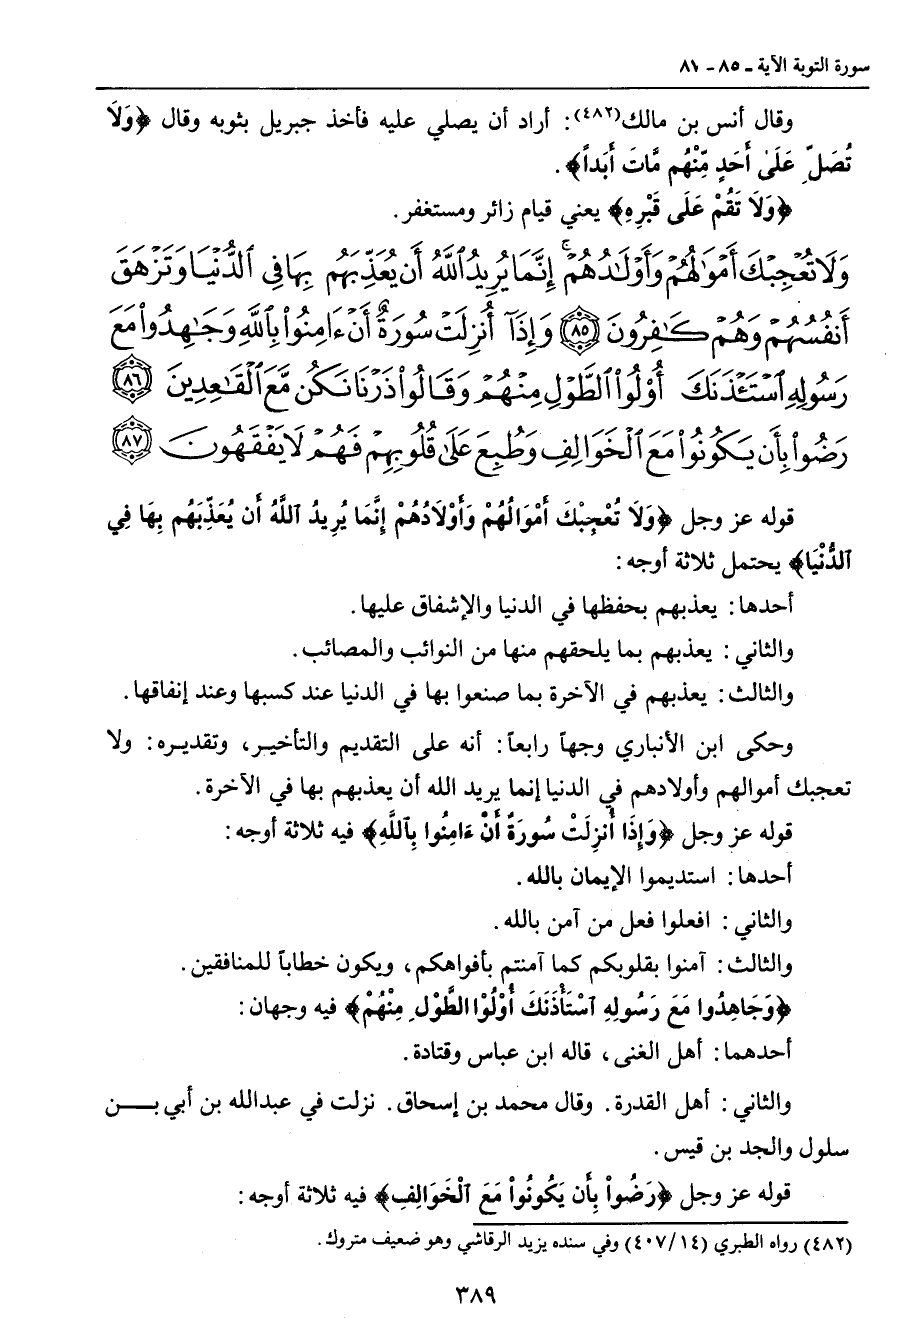 سورة التوبة الآية ـ ٨٥ - ٨٧
وقال أنس بن مالك(٤٨٢): أراد أن يصلي عليه فأخذ جبريل بثوبه وقال ﴿وَلَا
تُصَلِّ عَلَىٰ أَحَدٍ مِّنْهُم مَّاتَ أَبَداً﴾.
﴿وَلَا تَقُمْ عَلَى قَبْرِهِ﴾ يعني قيام زائر ومستغفر.
وَلَا تُعْجِبْكَ أَمْوَٰلُهُمْ وَأَوْلَٰدُهُمْ ۚ إِنَّمَا يُرِيدُ ٱللَّهُ أَن يُعَذِّبَهُم بِهَا فِي ٱلدُّنْيَا وَتَزْهَقَ
أَنفُسُهُمْ وَهُمْ كَٰفِرُونَ ٨٥ وَإِذَآ أُنزِلَتْ سُورَةٌ أَنْ ءَامِنُوا۟ بِٱللَّهِ وَجَٰهِدُوا۟ مَعَ
رَسُولِهِ ٱسْتَـْٔذَنَكَ أُو۟لُوا۟ ٱلطَّوْلِ مِنْهُمْ وَقَالُوا۟ ذَرْنَا نَكُن مَّعَ ٱلْقَٰعِدِينَ ٨٦
رَضُوا۟ بِأَن يَكُونُوا۟ مَعَ ٱلْخَوَالِفِ وَطُبِعَ عَلَىٰ قُلُوبِهِمْ فَهُمْ لَا يَفْقَهُونَ ٨٧
قوله عز وجل ﴿وَلَا تُعْجِبْكَ أَمْوَالُهُمْ وَأَوْلَادُهُمْ إِنَّمَا يُرِيدُ ٱللَّهُ أَن يُعَذِّبَهُم بِهَا فِي
ٱلدُّنْيَا﴾ يحتمل ثلاثة أوجه:
أحدها: يعذبهم بحفظها في الدنيا والإشفاق عليها.
والثاني: يعذبهم بما يلحقهم منها من النوائب والمصائب.
والثالث: يعذبهم في الآخرة بما صنعوا بها في الدنيا عند كسبها وعند إنفاقها.
وحكى ابن الأنباري وجهاً رابعاً: أنه على التقديم والتأخير، وتقديره: ولا
تعجبك أموالهم وأولادهم في الدنيا إنما يريد الله أن يعذبهم بها في الآخرة.
قوله عز وجل ﴿وَإِذَا أُنزِلَتْ سُورَةٌ أَنْ ءَامِنُوا بِٱللَّهِ﴾ فيه ثلاثة أوجه:
أحدها: استديموا الإيمان بالله.
والثاني: افعلوا فعل من آمن بالله.
والثالث: آمنوا بقلوبكم كما آمنتم بأفواهكم، ويكون خطاباً للمنافقين.
﴿وَجَاهِدُوا مَعَ رَسُولِهِ ٱسْتَأْذَنَكَ أُوْلُوْا الطَّوْلِ مِنْهُمْ﴾ فيه وجهان:
أحدهما: أهل الغنى، قاله ابن عباس وقتادة.
والثاني: أهل القدرة. وقال محمد بن إسحاق. نزلت في عبدالله بن أبي بن
سلول والجد بن قيس.
قوله عز وجل ﴿رَضُواْ بِأَن يَكُونُواْ مَعَ ٱلْخَوَالِفِ﴾ فيه ثلاثة أوجه:
(٤٨٢) رواه الطبري (٤٠٧/١٤) وفي سنده يزيد الرقاشي وهو ضعيف متروك.
٣٨٩